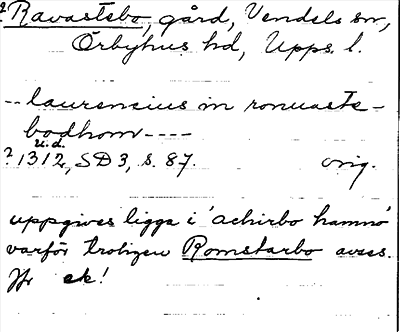 ? Ravastebo, gård, Vendels sn,
Örbyhus hd, Upps. l.
-- laurencius in ronuaste-
bodhom ----
u.d.
? 1312, SD 3, s. 87. orig.
uppgives ligga i 'achirbo hamno'
varför troligen Romstarbo avses.
Jfr ek!